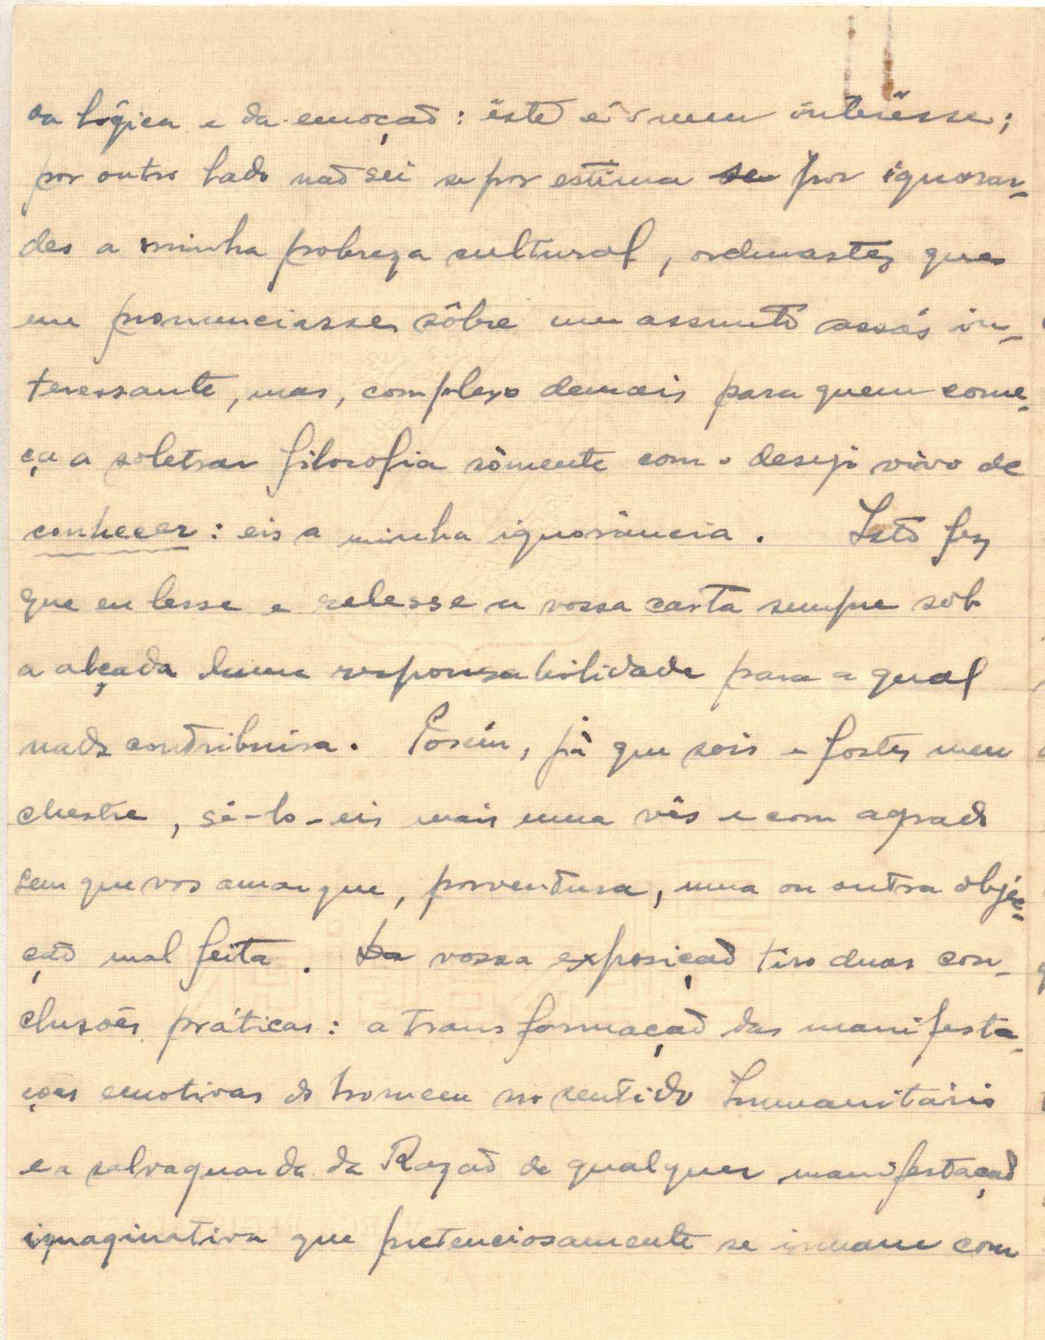 da lógica e da emoção: êste é o meu interêsse;
por outro lado não sei se por estima se por ignorar-
des a minha pobreza cultural, ordenastes que
me pronunciasse sôbre um assunto assás in-
teressante, mas, complexo demais para quem come-
ça a soletrar filosofia sòmente com o desejo vivo de
conhecer: eis a minha ignorância. Isto fez
que eu lesse e relesse a vossa carta sempre sob
a alçada duma responsabilidade para a qual
nada contribuira. Porém, já que sois e fostes meu
Mestre, sê-lo-eis mais uma vês e com agrado
sem que vos amargue, porventura, uma ou outra objéc-
ção mal feita. Da vossa exposição tiro duas con-
clusões práticas: a transformação das manifesta-
ções emotivas do homem no sentido Humanitário
e a salvaguarda da Razão de qualquer manifestação
imaginativa que pretenciosamente se irmane com